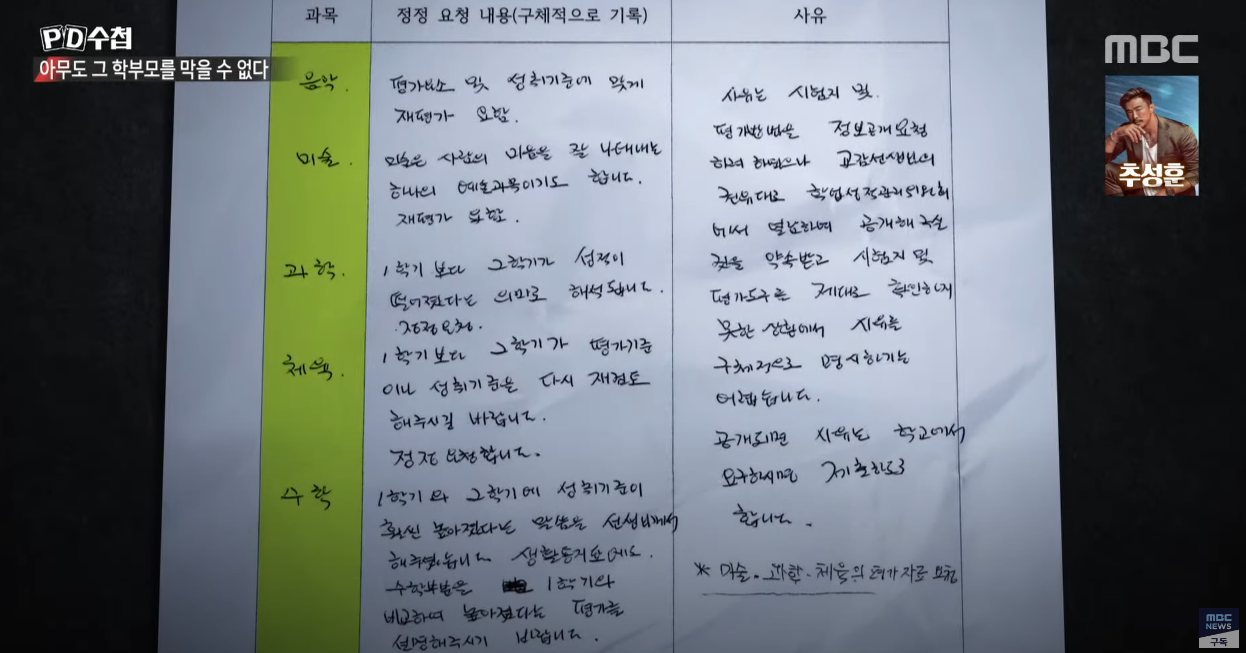 PD수첩
아무도 그 학부모를 막을 수 없다
MBC
추성훈
과목
정정 요청 내용(구체적으로 기록)
사유
음악.
평가요소 및 성취기준에 맞게
재평가 요함.
미술.
미술은 사람의 마음을 잘 나타내는
하나의 예술과목이기도 합니다.
재평가 요함.
과학.
1학기 보다 2학기가 성적이
떨어졌다는 의미로 해석됩니다.
정정요청.
체육.
1학기보다 2학기가 평가기준
이나 성취기준을 다시 재검토
해주시길 바랍니다.
정정 요청합니다.
수학
1학기와 2학기에 성취기준이
훨씬 높아졌다는 말씀을 선생님께서
해주셨습니다 생활통지표에도.
수학부분을 1학기와
비교하여 높아졌다는 평가를
설명해주시기 바랍니다.
사유는 시험지 및
평가방법을 정보공개요청
하려 하였으나 교감선생님의
권유대로 학업성적관리위원회
에서 열람하여 공개해주실
것을 약속받고 시험지 및
평가도구를 제대로 확인하지
못한 상황에서 사유를
구체적으로 명시하기는
어렵습니다.
공개되면 사유는 학교에서
요구하시면 제출하도록
합니다.
※ 미술. 과학. 체육의 평가자료 요청
MBC
NEWS
구독